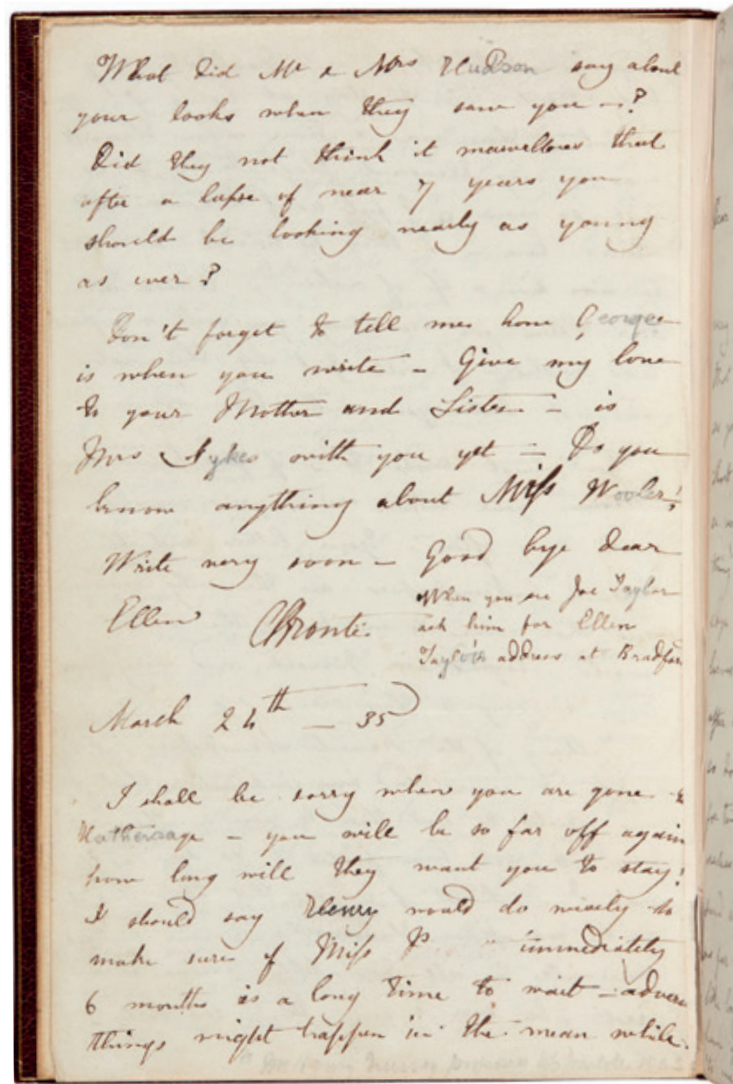 What did Mr & Mrs Hudson say about
your looks when they saw you —?
Did they not think it marvellous that
after a lapse of near 7 years you
should be looking nearly as young
as ever?
Don't forget to tell me how George
is when you write — Give my love
to your Mother and Sisters — is
Mrs Sykes with you yet — Do you
know anything about Miss Wooler?
Write very soon — Good bye dear
Ellen CBronte.
When you see Joe Taylor
ask him for Ellen
Taylor's address at Bradford
March 24th — 35
I shall be sorry when you are gone to
Hathersage — you will be so far off again
how long will they want you to stay?
I should say Henry would do wisely to
make sure of Miss P immediately
6 months is a long time to wait — adverse
things might happen in the mean while.